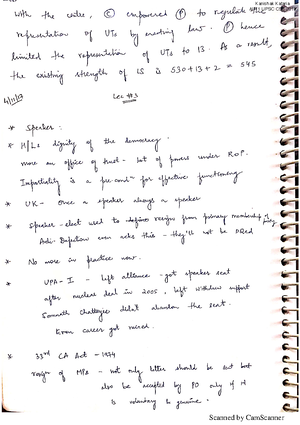 with the centre, Ⓒ empowered Ⓟ to regulate the
representation of UTs by enacting law. Ⓟ hence
limited the representation of UTs to 13. As a result,
the existing strength of LS is 530+13+2 = 545
Lec #3
* Speaker :
* H/Ls dignity of the democracy.
more an office of trust - lot of powers under RoP.
Impartiality is a for effective functioning
* UK - Once a speaker always a speaker
* Speaker-elect used to resign from primary membership of party
Anti-Defection even acks this - they'll not be DQed
* No more in practice now.
* UPA-I - left alliance - got speaker seat
after nuclear deal in 2005, left withdrew support
Somnath Chatterjee didn't abandon the seat.
career got ruined.
* 33rd CA Act - 1974
resign of MPs - not only letter should be sent but
also be accepted by PO only if it
is voluntary & genuine.
Scanned by CamScanner